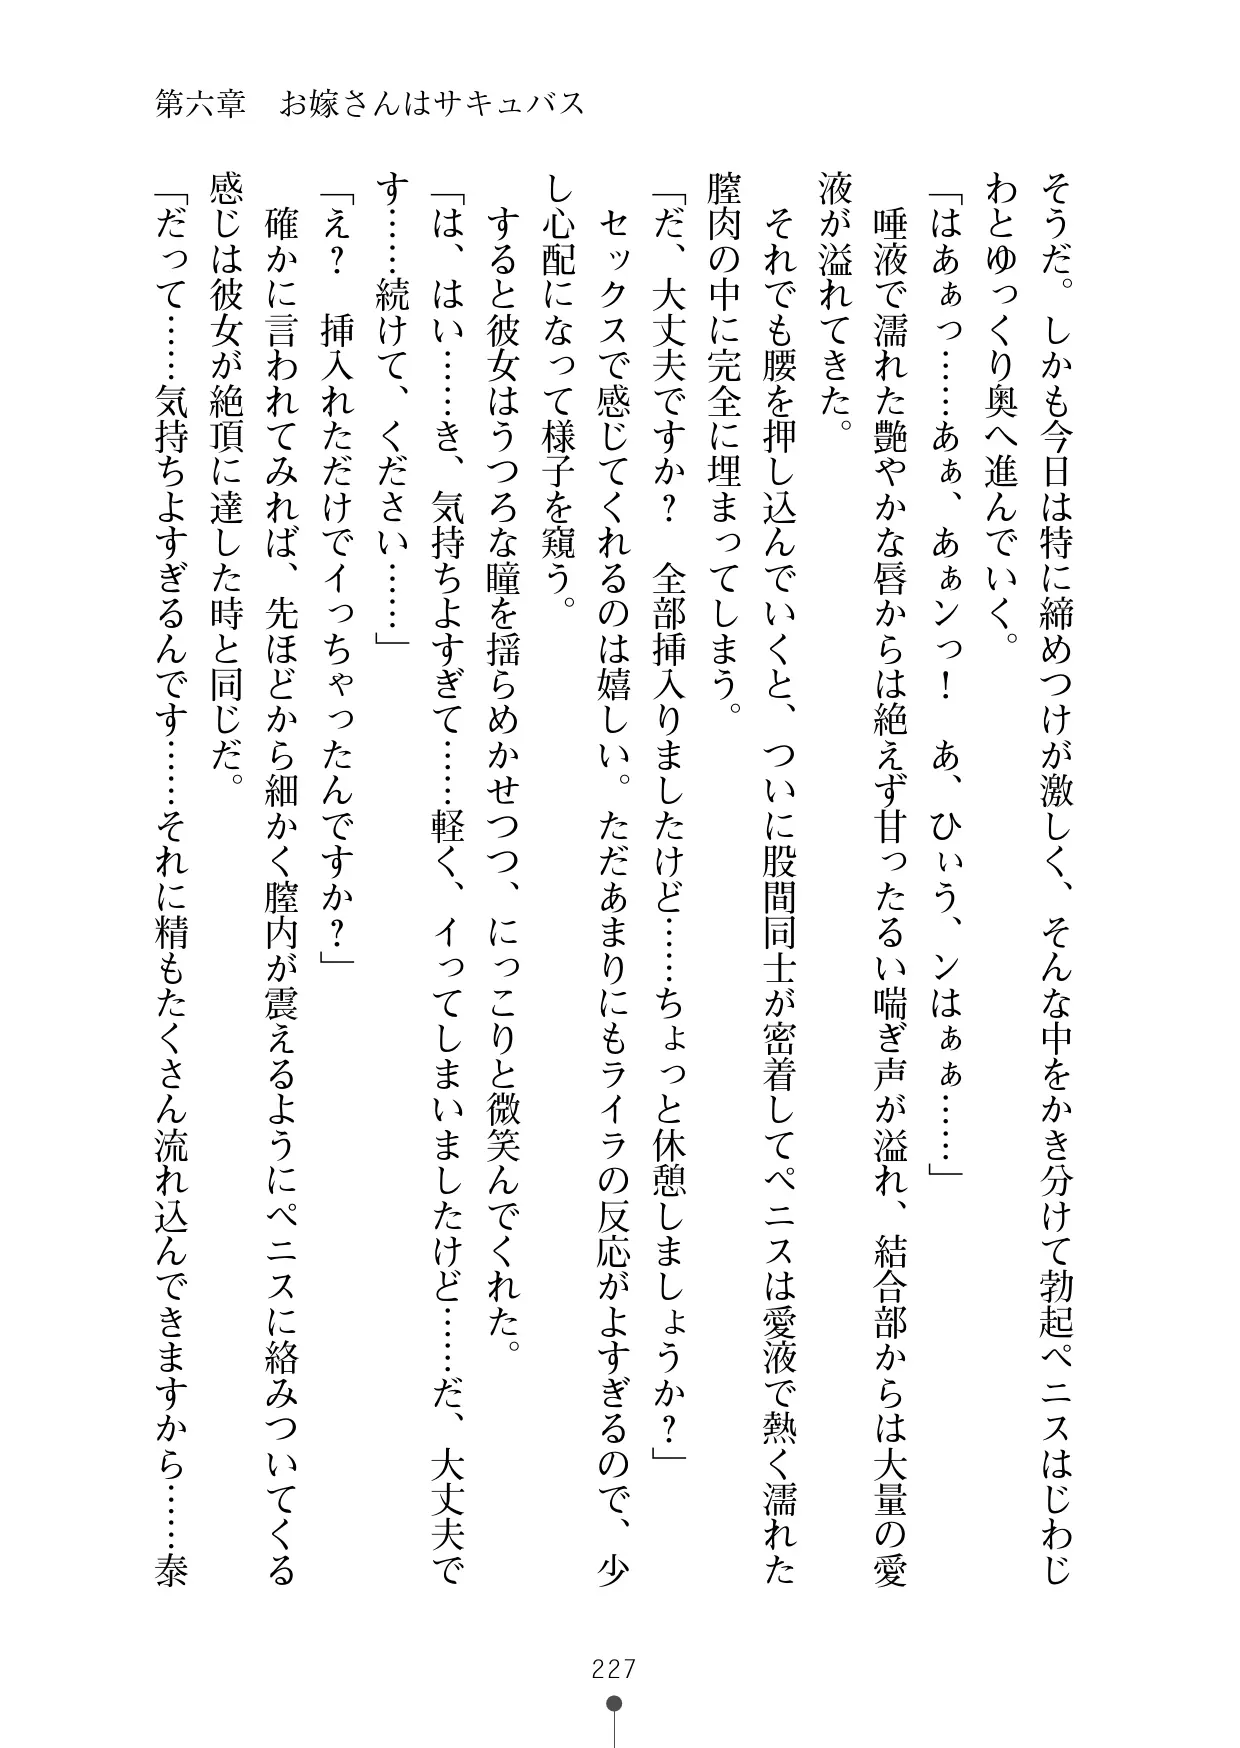 第六章　お嫁さんはサキュバス
そうだ。しかも今日は特に締めつけが激しく、そんな中をかき分けて勃起ペニスはじわじ
わとゆっくり奥へ進んでいく。
「はあぁっ……あぁ、あぁンっ！　あ、ひぃう、ンはぁぁ……」
　唾液で濡れた艶やかな唇からは絶えず甘ったるい喘ぎ声が溢れ、結合部からは大量の愛
液が溢れてきた。
　それでも腰を押し込んでいくと、ついに股間同士が密着してペニスは愛液で熱く濡れた
膣肉の中に完全に埋まってしまう。
「だ、大丈夫ですか？　全部挿入りましたけど……ちょっと休憩しましょうか？」
　セックスで感じてくれるのは嬉しい。ただあまりにもライラの反応がよすぎるので、少
し心配になって様子を窺う。
　すると彼女はうつろな瞳を揺らめかせつつ、にっこりと微笑んでくれた。
「は、はい……き、気持ちよすぎて……軽く、イってしまいましたけど……だ、大丈夫で
す……続けて、ください……」
「え？　挿入れただけでイっちゃったんですか？」
　確かに言われてみれば、先ほどから細かく膣内が震えるようにペニスに絡みついてくる
感じは彼女が絶頂に達した時と同じだ。
「だって……気持ちよすぎるんです……それに精もたくさん流れ込んできますから……泰
227